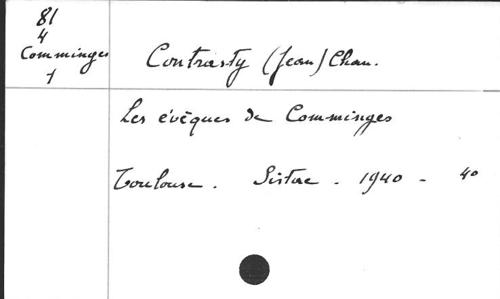 81
4
Comminges
1
Contrasty (Jean) Chan.
Les évêques de Comminges
Toulouse. Sistac - 1940 - 4º